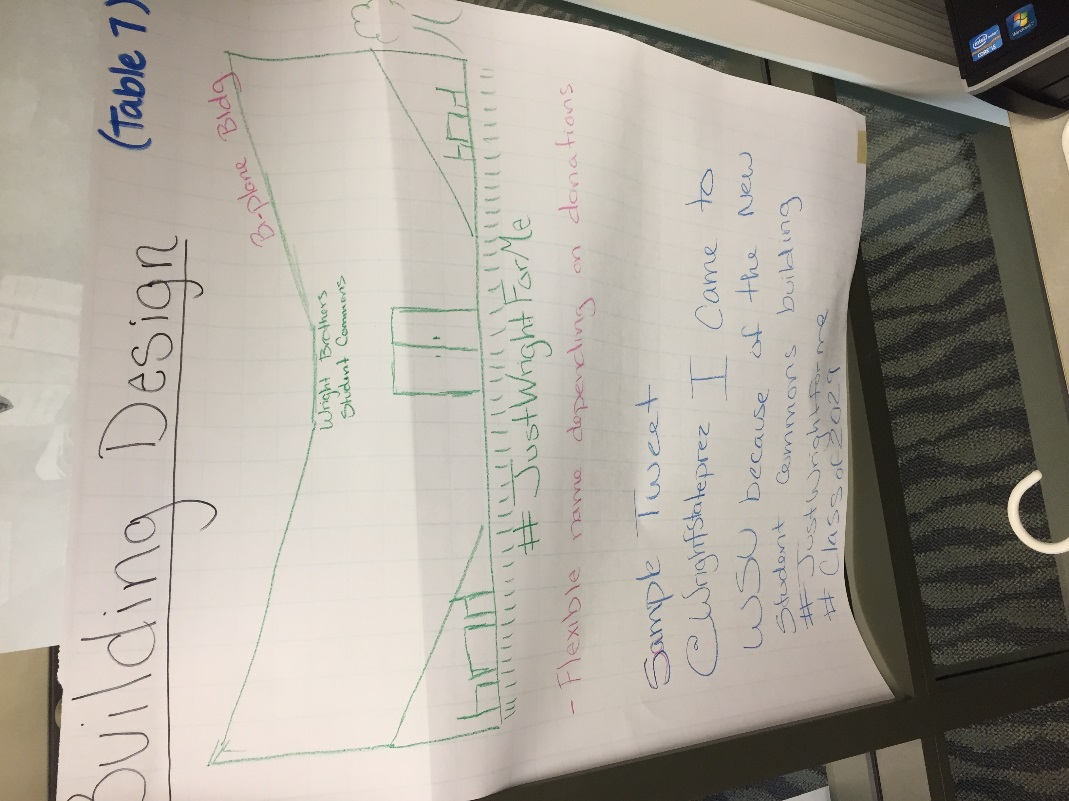 Building Design (Table 7)
B-plane Bldg
Wright Brothers
Student Commons
#JustWrightForMe
- Flexible name depending on donations
Sample Tweet
@Wrightstateprez I came to
WSU because of the new
Student Commons building
#JustWrightForme
#Classof2029
intel
CORE i5
Windows 7